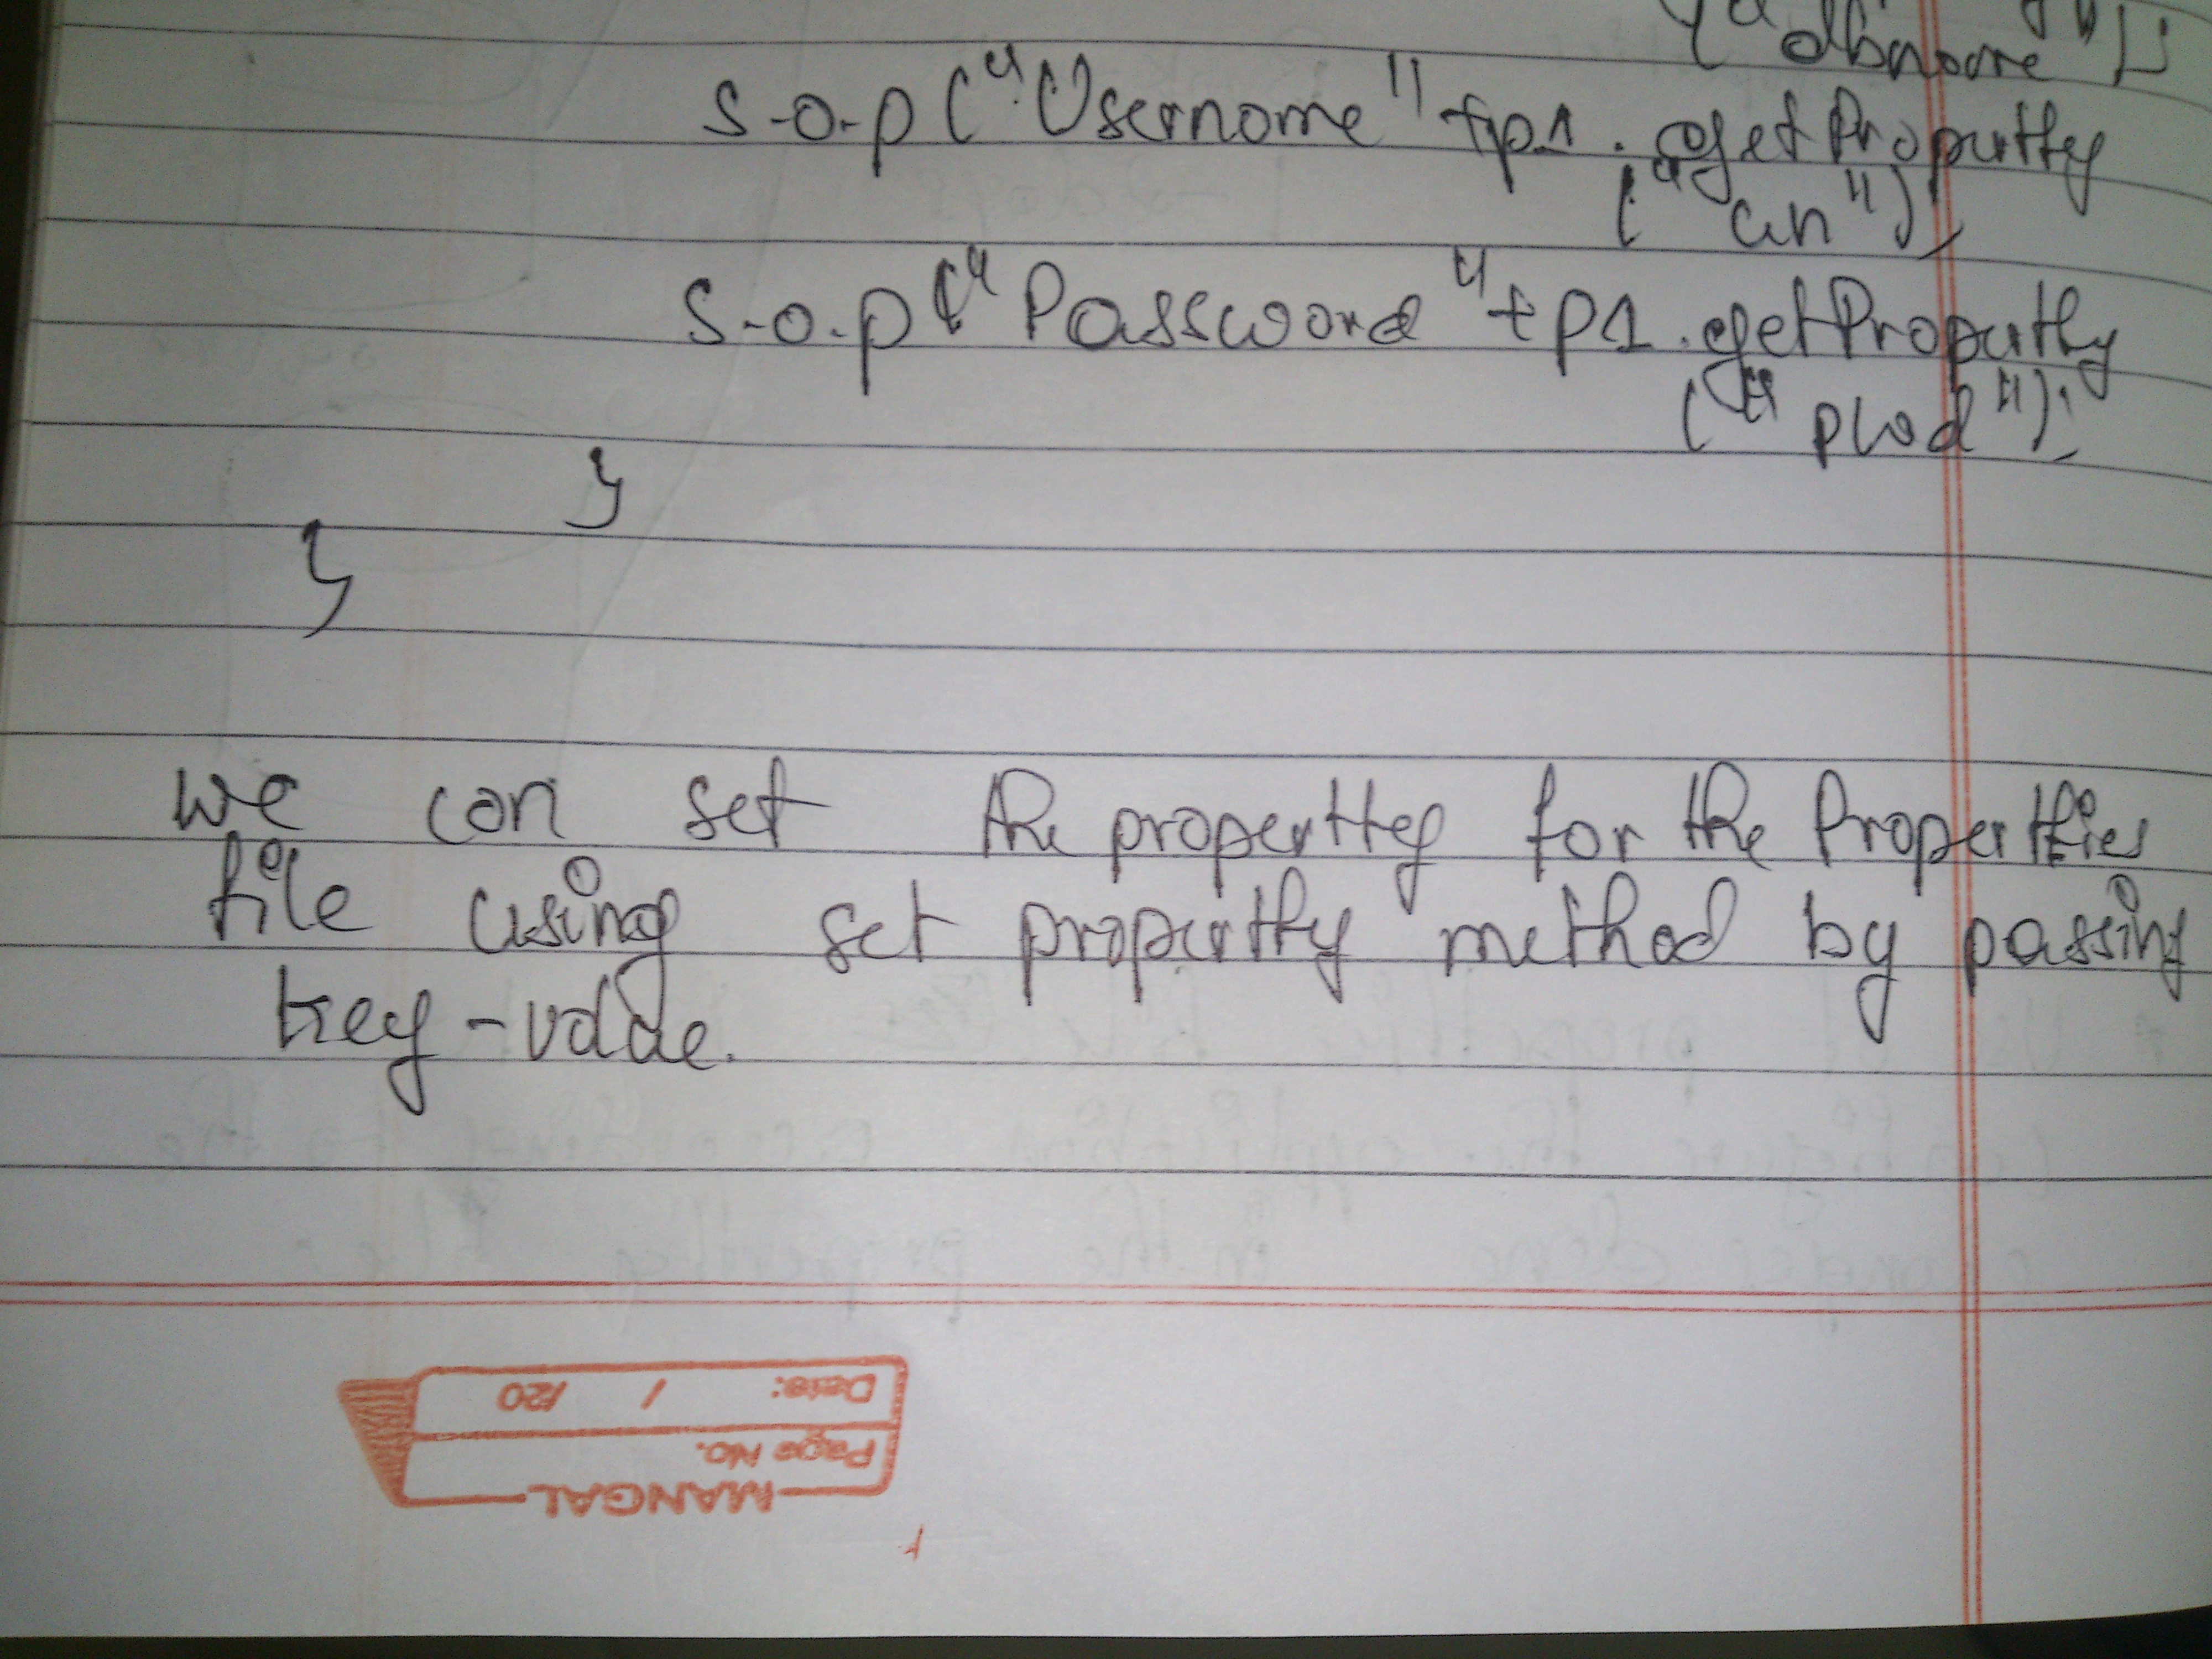 ("dbname");
S.o.p ("Username"+p1.getProperty
("un");
S.o.p ("Password"+p1.getProperty
("pwd");
}
}
we can set the property for the Properties
file using set property method by passing
key-value.
MANGAL
Page No.
Date: / /20